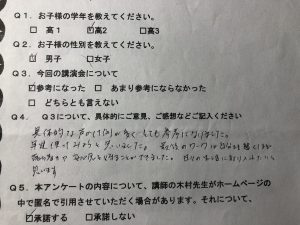 Q1．お子様の学年を教えてください。
□高1 ☑高2 □高3
Q2．お子様の性別を教えてください。
☑男子 □女子
Q3．今回の講演会について
☑参考になった □あまり参考にならなかった
□どちらとも言えない
Q4．Q3について、具体的にご意見、ご感想などご記入ください
具体的な声のかけ例が多く、とても参考になりました。
早速使ってみようと思いました。最後のワークは
ができました。日々の生活に取り入れたいと
思います
Q5．本アンケートの内容について、講師の木村先生がホームページの
中で匿名で引用させていただく場合があります。それについて、
☑承諾する □承諾しない